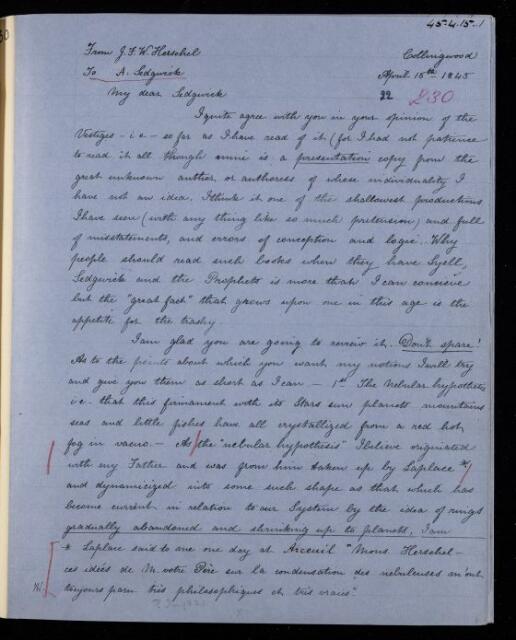 45.4.15.1
From J. F. W. Herschel
Collingwood
To A. Sedgwick
April 15th 1845
My dear Sedgwick
22
230
I quite agree with you in your opinion of the
Vestiges - i.e - so far as I have read of it (for I had not patience
to read it all though mine is a presentation copy from the
great unknown author or authoress of whose individuality I
have not an idea. I think it one of the shallowest productions
I have seen (with any thing like so much pretension) and full
of misstatements, and errors of conception and logic. Why
people should read such books when they have Lyell,
Sedgwick and the Prophets is more than I can conceive
but the "great fact" that grows upon one in this age is the
appetite for the trashy.
I am glad you are going to review it. Don't spare!
As to the points about which you want my notions I will try
and give you them as short as I can - 1st The Nebular hypothesis
i.e. that this firmament with its Stars sun planets mountains
seas and little fishes have all crystallized from a red hot
fog in vacuo. - As the "nebular hypothesis" I believe originated
with my Father and was from him taken up by Laplace *
and dynamicized into some such shape as that which has
become current in relation to our System by the idea of rings
gradually abandoned and shrinking up to planets, I am
* Laplace said to me one day at Arceuil "Mons. Herschel -
ces idées de M. votre Père sur la condensation des nebuleuses m'ont
toujours paru très philosophiques et très vraies".